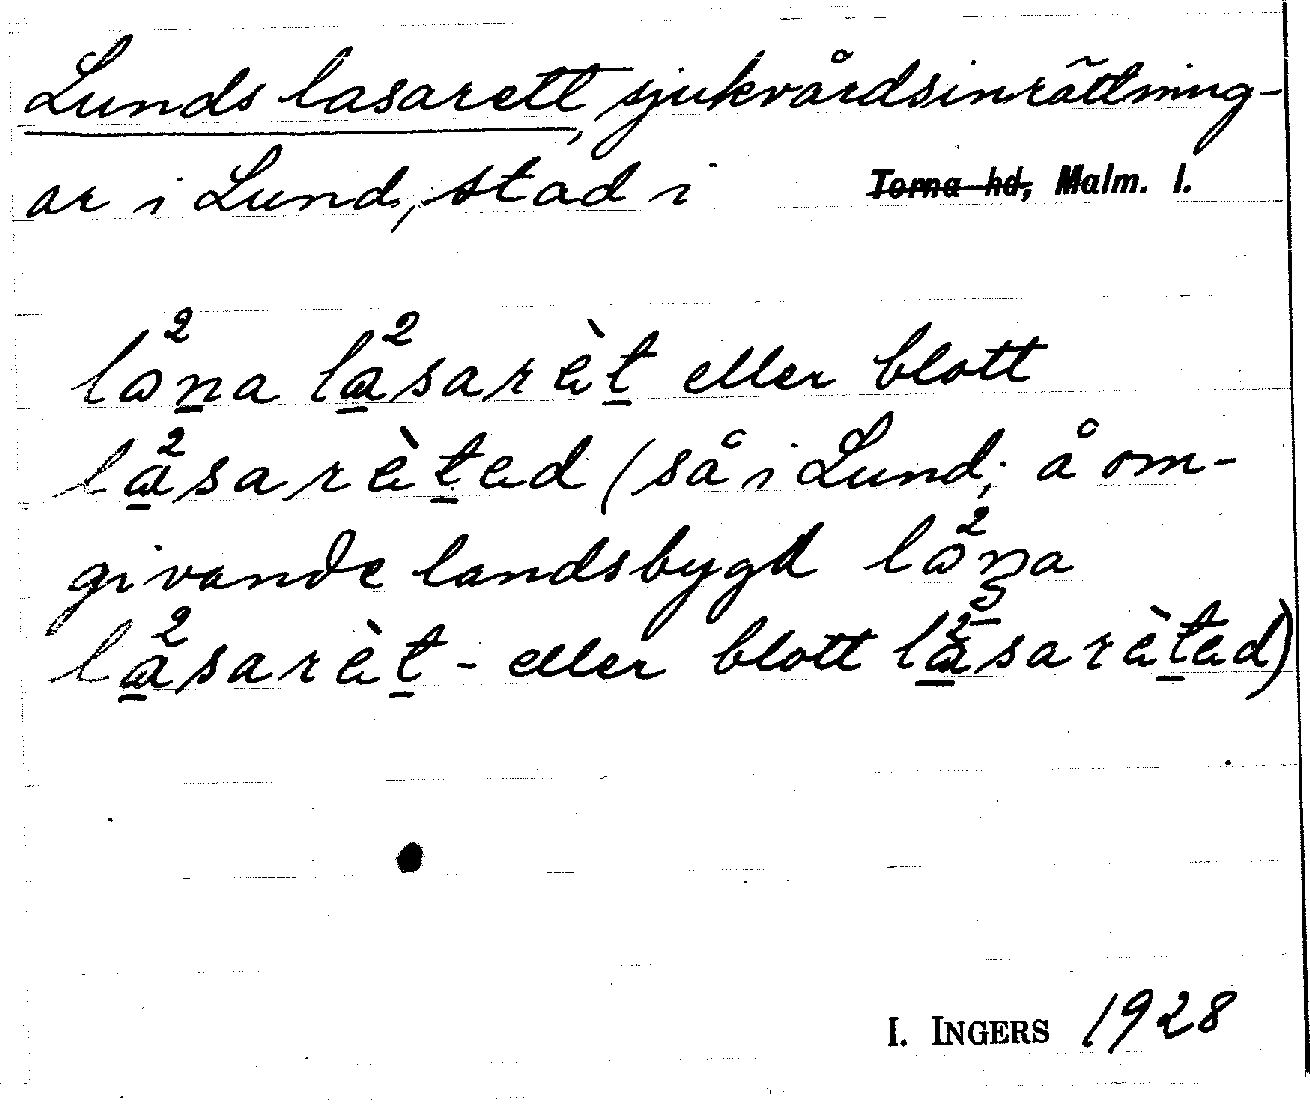 Lunds lasarett, sjukvårdsinrättning-
ar i Lund, stad i Torna hd, Malm. l.
lo²na la²sarèt eller blott
la²sarètad (så i Lund; å om-
givande landsbygd lo²na
la²sarèt - eller blott la²sarètad)
I. INGERS 1928